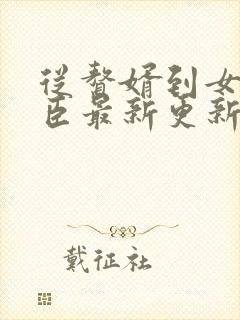 从赘婿到女
臣最新更新
戴征社